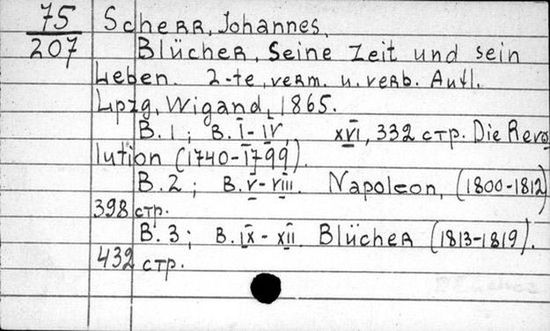 75 Scherr, Johannes.
207 Blücher, Seine Zeit und sein
Leben. 2-te, verm. u. verb. Aufl.
Lpzg, Wigand, 1865.
B. 1; B. I-IV XVI, 332 стр. Die Revo
lution (1740-1799).
B. 2; B. V-VIII. Napoleon, (1800-1812)
398 стр.
B. 3; B. IX-XII Blücher (1813-1819).
432 стр.